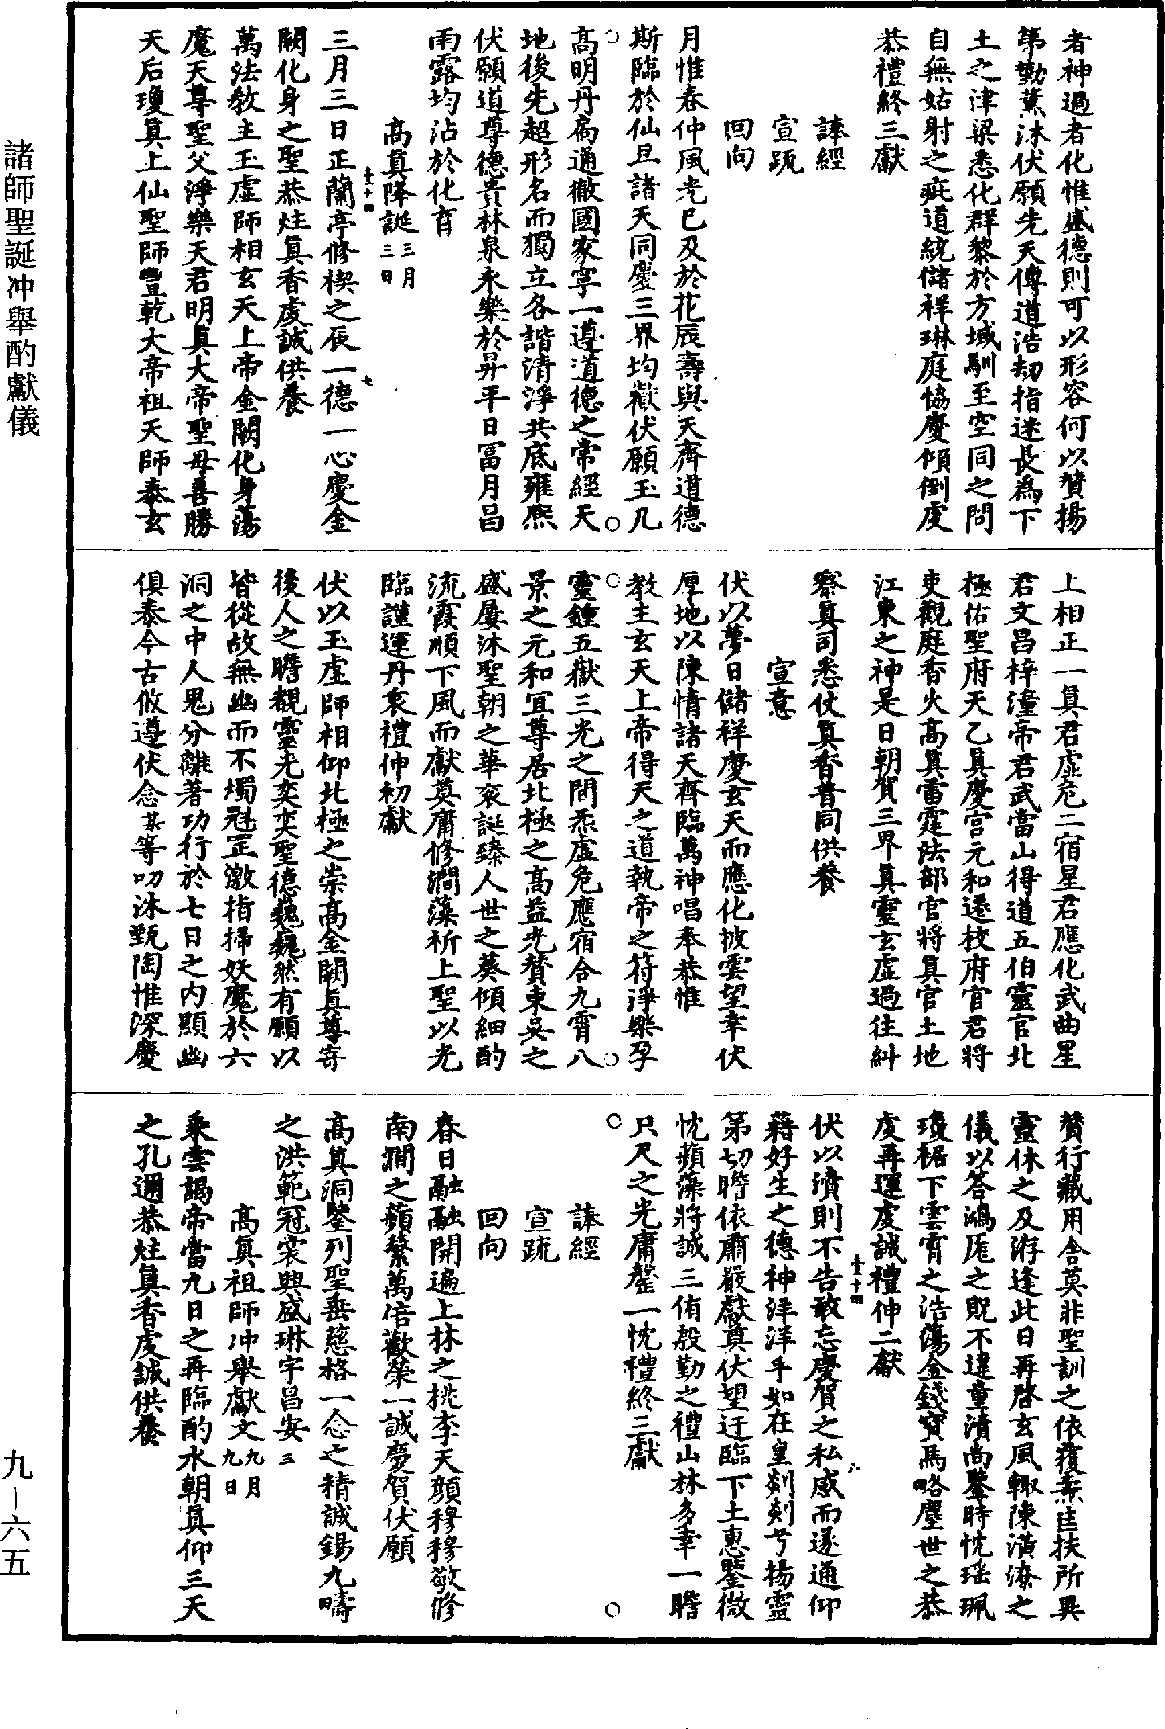 諸師聖誕冲舉酌獻儀
九—六五
者神過者化惟盛德則可以形容何以贊揚
第勤薰沐伏願先天傳道浩劫指迷長為下
土之津梁悉化群黎於方域馴至空同之問
自無姑射之疵道統儲祥琳庭協慶傾倒虔
恭禮終三獻
誦經
宣疏
回向
月惟春仲風光已及於花辰壽與天齊道德
斯臨於仙旦諸天同慶三界均歡伏願玉几
高明丹扃通徹國家寧一遵道德之常經天
地後先超形名而獨立各諧清淨共底雍熙
伏願道尊德貴林泉永樂於昇平日富月昌
雨露均沾於化育
高真降誕三月三日
壹十四
七
三月三日正蘭亭修禊之辰一德一心慶金
闕化身之聖恭炷真香虔誠供養
萬法教主玉虛師相玄天上帝金闕化身蕩
魔天尊聖父淨樂天君明真大帝聖母善勝
天后瓊真上仙聖師豐乾大帝祖天師泰玄
上相正一真君虛危二宿星君應化武曲星
君文昌梓潼帝君武當山得道五伯靈官北
極佑聖府天乙真慶宮元和遷校府官君將
吏觀庭香火高真雷霆法部官將真官土地
江東之神是日朝賀三界真靈玄虛過往糾
察真司悉仗真香普同供養
宣意
伏以夢日儲祥慶玄天而應化披雲望幸伏
厚地以陳情諸天齊臨萬神唱奉恭惟
教主玄天上帝得天之道執帝之符淨樂孕
靈鍾五嶽三光之間炁虛危應宿合九霄八
景之元和宜尊居北極之高益光贊東吳之
盛屢沐聖朝之華衮誕臻人世之葵傾細酌
流霞順下風而獻奠庸修澗藻祈上聖以光
臨謹運丹衷禮伸初獻
伏以玉虛師相仰北極之崇高金闕真尊寄
後人之瞻覩靈光奕奕聖德巍巍然有願以
皆從故無幽而不燭冠罡激指掃妖魔於六
洞之中人鬼分離著功行於七日之內顯幽
俱泰今古攸遵伏念某等叨沐甄陶惟深慶
贊行藏用舍莫非聖訓之依覆燾匡扶所異
靈休之及洊逢此日再啓玄風輙陳潢潦之
儀以答鴻厖之貺不遑童清尚鑒時忱瑶珮
瓊裾下雲霄之浩蕩金錢寶馬略塵世之恭
虔再運虔誠禮伸二獻
壹十四
八
伏以瀆則不告敢忘慶賀之私感而遂通仰
藉好生之德神洋洋乎如在皇剡剡兮揚靈
第切瞻依肅嚴獻奠伏望迂臨下土惠鑒微
忱蘋藻將誠三侑殷勤之禮山林多幸一瞻
只尺之光庸罄一忱禮終三獻
誦經
宣疏
回向
春日融融開遍上林之桃李天顔穆穆敬修
南澗之蘋蘩萬倍歡榮一誠慶賀伏願
高真洞鑒列聖垂慈格一念之精誠錫九疇
之洪範冠裳興盛琳宇昌安三
高真祖師冲舉獻文九月九日
乘雲謁帝當九日之再臨酌水朝真仰三天
之孔邇恭炷真香虔誠供養